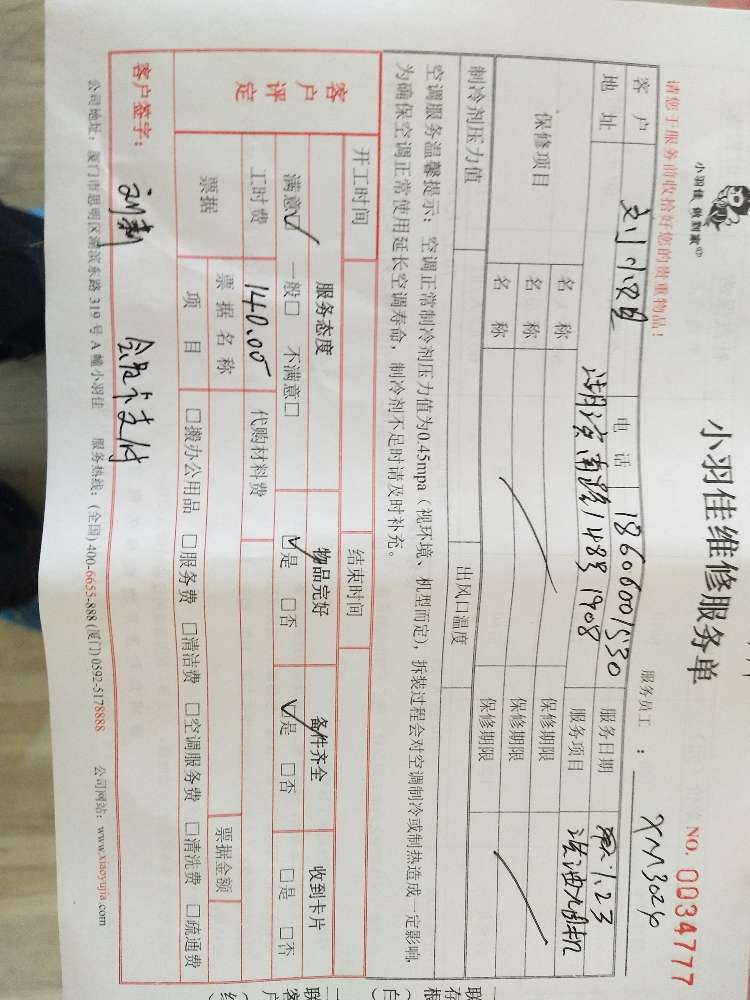 小羽佳 家政家®
小羽佳维修服务单
NO. 0034777
请您于服务前收拾好您的贵重物品!
服务员工 : XM3024
客户 电话 18606001530 服务日期 1.23
地址 湖滨南路148号 1908 服务项目 洗油烟机
保修项目 名称 保修期限
名称 保修期限
名称 保修期限
制冷剂压力值 出风口温度
空调服务温馨提示: 空调正常制冷剂压力值为0.45mpa(视环境、机型而定), 拆装过程会对空调制冷或制热造成一定影响,
为确保空调正常使用延长空调寿命, 制冷剂不足时请及时补充。
开工时间 结束时间
客户评定 服务态度 物品完好 备件齐全 收到卡片
满意☑ 一般□ 不满意□ ☑是 □否 ☑是 □否 □是 □否
工时费 140.00 代购材料费
票据 票据名称 票据金额
项目 □搬办公用品 □服务费 □清洁费 □空调服务费 □清洗费 □疏通费
客户签字: 会员卡支付
公司地址: 厦门市思明区湖滨东路 319 号 A 幢小羽佳 服务热线: (全国) 400-6655-888 (厦门) 0592-5178888 公司网站: www.xiaoyujia.com